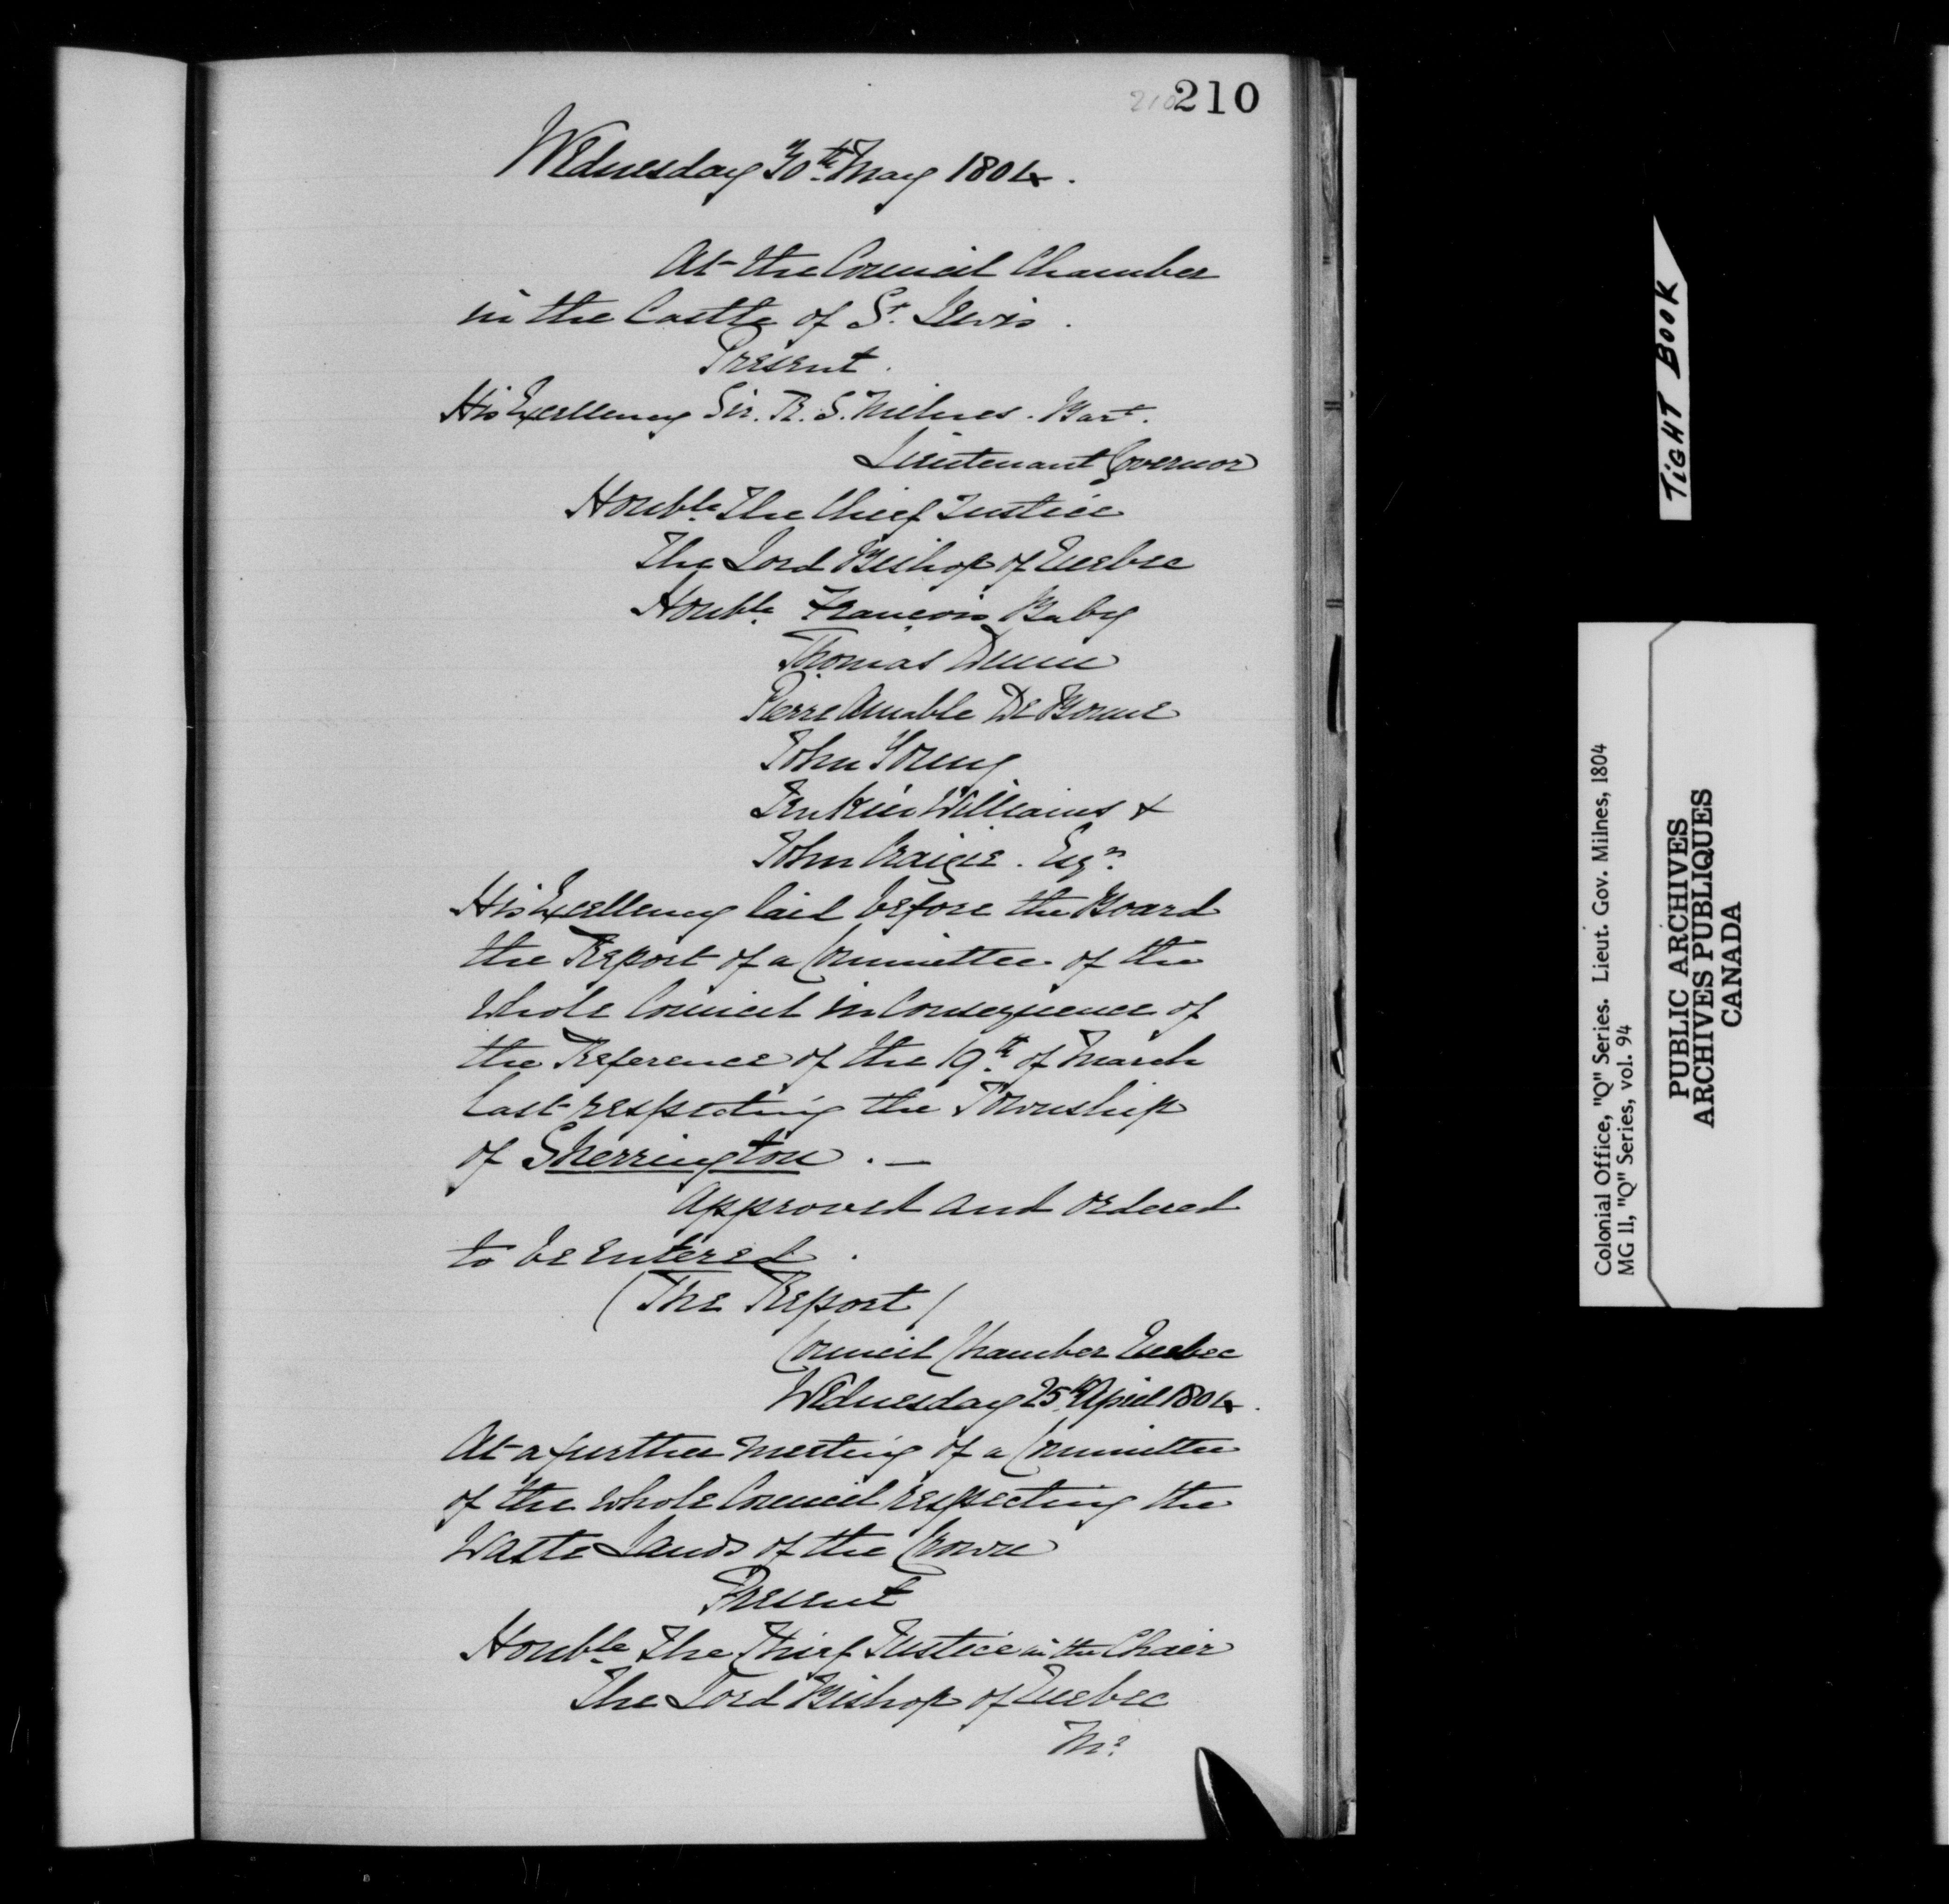 210 210
Wednesday 30th May 1804.
At the Council Chamber
in the Castle of St. Lewis.
Present.
His Excellency Sir. R. S. Milnes. Bart.
Lieutenant Governor
Honble. The Chief Justice
The Lord Bishop of Quebec
Honble. François Baby
Thomas Dunn
Pierre Amable De Bonne
John Young
Jenkin Williams &
John Craigie. Esqrs.
His Excellency laid before the Board
the Report of a Committee of the
whole Council in Consequence of
the Reference of the 19th. of March
last respecting the Township
of Sherrington. —
Approved and ordered
to be entered.
(The Report)
Council Chamber Quebec
Wednesday 25th April 1804.
At a further meeting of a Committee
of the whole Council respecting the
Waste Lands of the Crown
Present
Honble. The Chief Justice in the Chair
The Lord Bishop of Quebec
Mr.
TIGHT BOOK
Colonial Office, "Q" Series. Lieut. Gov. Milnes, 1804
MG 11, "Q" Series, vol. 94
PUBLIC ARCHIVES
ARCHIVES PUBLIQUES
CANADA